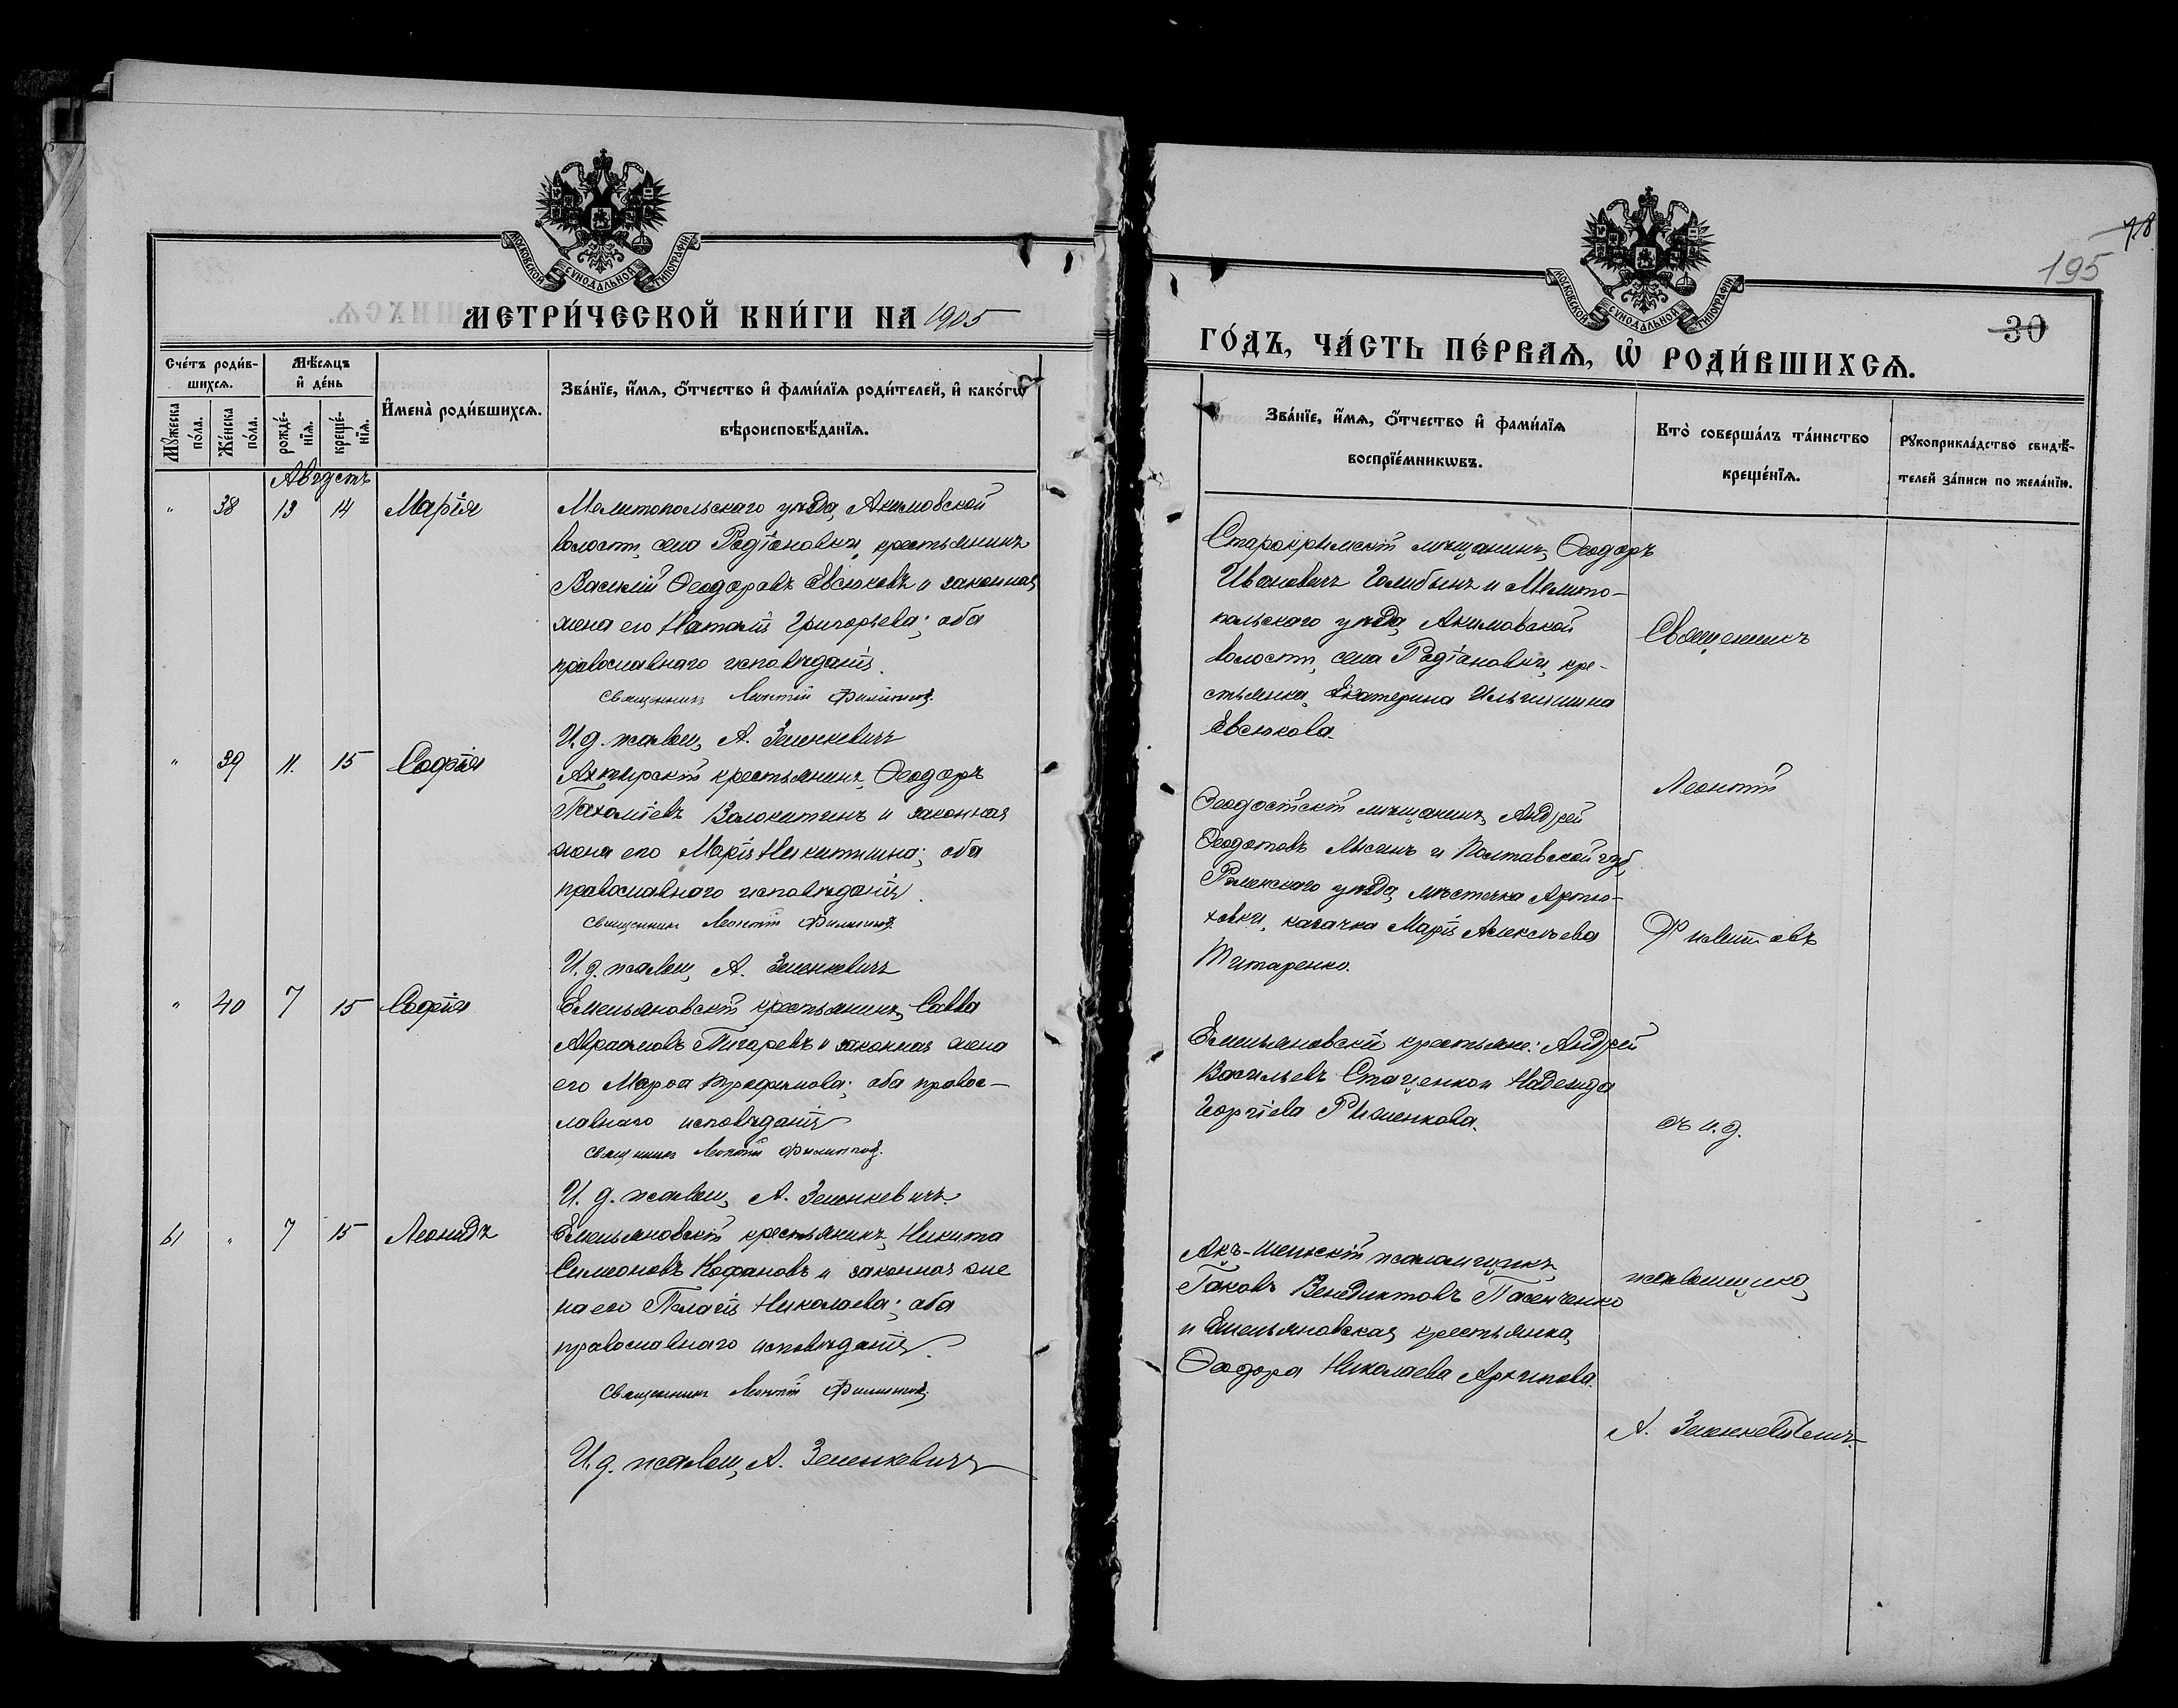 МОСКОВСКОЙ СУНОДАЛЬНОЙ ТИПОГРАФІИ
МЕТРИ́ЧЕСКОЙ КНИ́ГИ НА 1905
Сче́тъ роди́в-
шихсѧ.
Мꙋ́жеска по́ла.
Же́нска по́ла.
Мѣ́сѧцъ
и҆ де́нь
рожде́-
нїѧ.
креще́-
нїѧ.
И҆мена̀ роди́вшихсѧ.
Зва́нїе, и҆́мѧ, ѻ҆́тчество и҆ фами́лїѧ роди́телей, и҆ како́гѡ
вѣроисповѣ́данїѧ.
Августъ
" 38 13 14 Марія
Мелитопольскаго уѣзда, Акимовской
волости, села Родіоновки, крестьянинъ
Василій Ѳеодоровъ Евсюковъ и законная
жена его Наталія Григорьева; оба
православнаго исповѣданія.
Священникъ Леонтій Филиповъ
И.д. псаломщ. А. Зеленкевичъ
" 39 11. 15 Софія
Ахтырскій крестьянинъ, Ѳеодоръ
Пахоміевъ Волокитинъ и законная
жена его Марія Никитина; оба
православнаго исповѣданія.
Священникъ Леонтій Филиповъ
И.д. псаломщ. А. Зеленкевичъ
" 40 7 15 Софія
Емельяновскій крестьянинъ, Савва
Авраамовъ Пигаревъ и законная жена
его Марѳа Трофимова; оба правос-
лавнаго исповѣданія
Священникъ Леонтій Филиповъ.
И.д. псаломщ. А. Зеленкевичъ
61 " 7 15 Леонидъ
Емельяновскій крестьянинъ, Никита
Симеоновъ Кофановъ и законная же
на его Пелагія Николаева; оба
православнаго исповѣданія.
Священникъ Леонтій Филиповъ
И.д. псаломщ. А. Зеленкевичъ
МОСКОВСКОЙ СУНОДАЛЬНОЙ ТИПОГРАФІИ
78
195
30
ГО́ДЪ, ЧА́СТЬ ПЕ́РВАѦ, Ѡ҆ РОДИ́ВШИХСѦ.
Зва́нїе, и҆́мѧ, ѻ҆́тчество и҆ фами́лїѧ
воспрїе́мникѡвъ.
Кто̀ соверша́лъ та́инство
креще́нїѧ.
Рꙋкоприкла́дство свидѣ́-
телей за́писи по жела́нїю.
Старокрымскій мѣщанинъ, Ѳеодоръ
Ивановичъ Голибынъ и Мелито-
польскаго уѣзда, Акимовской
волости, села Родіоновки, кре-
стьянка, Екатерина Ильинична
Евсюкова.
Ѳеодосійскій мѣщанинъ, Андрей
Ѳеодотовъ Лысинъ и Полтавской губ.
Роменскаго уѣзда, мѣстечка Артю-
ховки, казачка Марія Алексѣева
Титаренко.
Емельяновскій крестьяне: Андрей
Васильевъ Стаценко и Надежда
Георгіева
Акъ-Шеихскій
Іаковъ Венедиктовъ Пасенченко
и Емельяновская крестьянка,
Ѳеодора Николаева Архипова.
Священникъ
Леонтій
Филиповъ
съ и.д.
псаломщика,
А. Зеленкевичемъ.